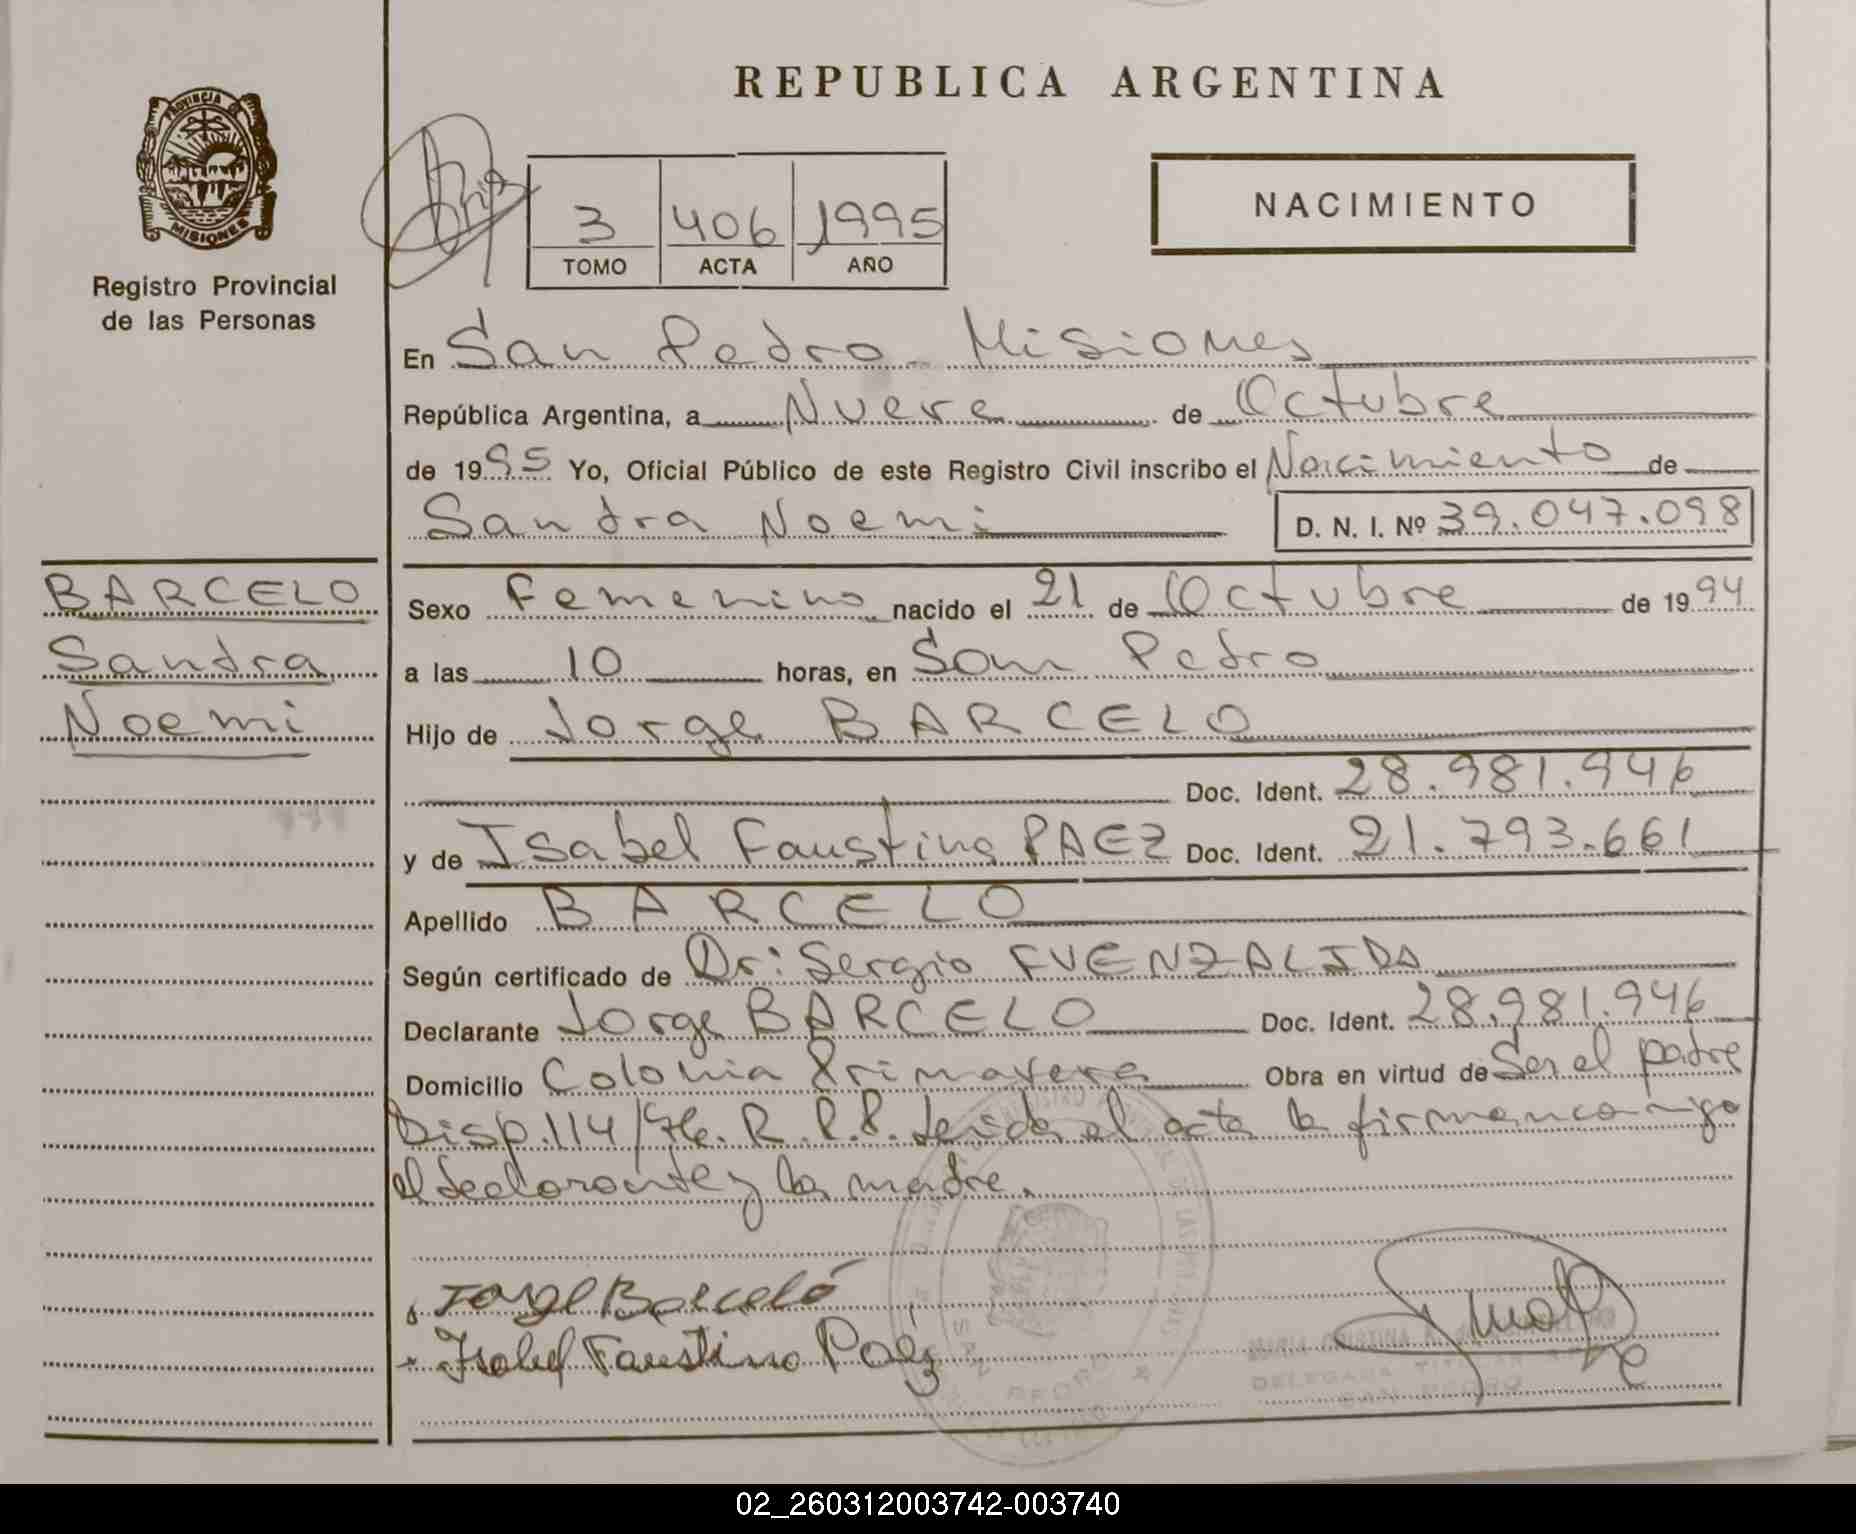 REPUBLICA ARGENTINA
PROVINCIA
MISIONES
Registro Provincial
de las Personas
3 406 1995
TOMO ACTA AÑO
NACIMIENTO
En San Pedro Misiones
República Argentina, a Nueve de Octubre
de 1995 Yo, Oficial Público de este Registro Civil inscribo el Nacimiento de
Sandra Noemi D. N. I. Nº 39.047.098
BARCELO
Sandra
Noemi
Sexo Femenino nacido el 21 de Octubre de 1994
a las 10 horas, en San Pedro
Hijo de Jorge BARCELO
Doc. Ident. 28.981.946
y de Isabel Faustina PAEZ Doc. Ident. 21.793.661
Apellido BARCELO
Según certificado de Dr: Sergio FUENZALIDA
Declarante Jorge BARCELO Doc. Ident. 28.981.946
Domicilio Colonia Primavera Obra en virtud de Ser el padre
Disp. 114/76. R. P. P. Leida el acta la firman conmigo
el declarante y la madre.
Jorge Barceló
Isabel Faustina Paéz
MARIA CRISTINA
DELEGADA TITULAR
SAN PEDRO
SAN PEDRO
02_260312003742-003740